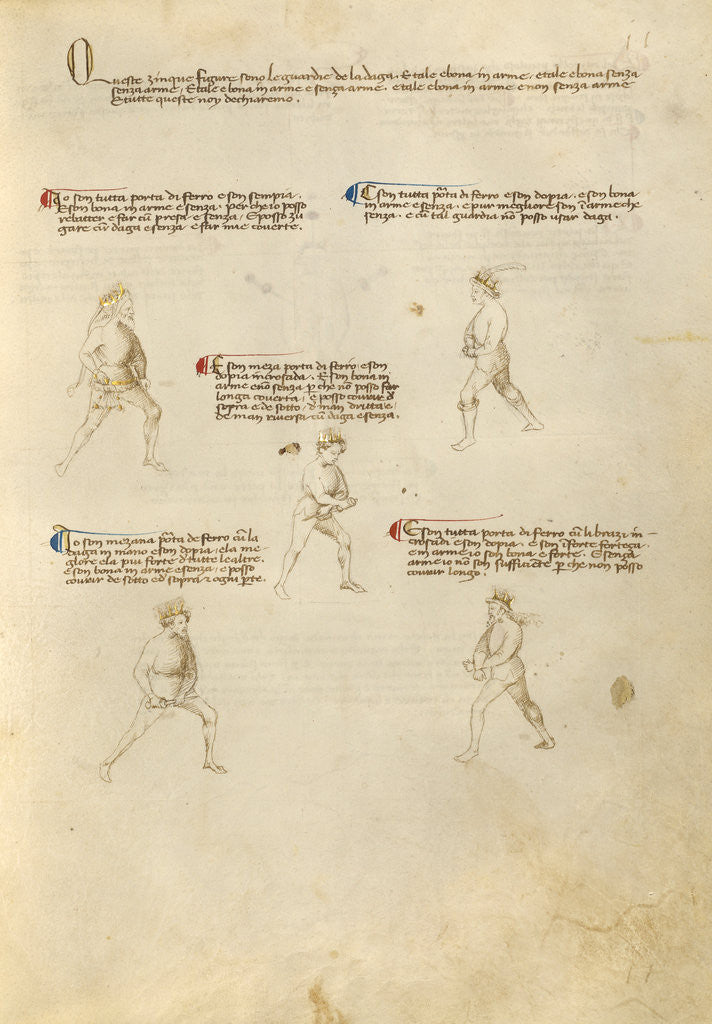 11
Queste zinque figure sono le guardie de la daga. E tale e bona in arme, e tale e bona senza
senza arme, E tale e bona in arme e senza arme. e tale e bona in arme e non senza arme
E tutte queste noy dechiaremo.
Io son tutta porta di ferro e son sempia.
E son bona in arme e senza. perche io posso
rebatter e far cũ presa e senza, E posso zu
gare cũ daga e senza e far mie coverte.
E son tutta pōta di ferro e son dopia. e son bona
in arme e senza. e pur megliore son ĩ arme che
senza. e cũ tal guardia nō posso usar daga.
E son meza porta di ferro e son
dopia incrosada. E son bona in
arme e nō senza p che nō posso far
longa coverta, e posso covrir d
sopra e de sotto, d man dritta e,
de man riversa cũ daga e senza.
Io son mezana pōta de ferro cũ la
daga in mano e son dopia, e la me-
glore e la piu forte d tutte le altre.
e son bona in arme e senza, e posso
covrir de sotto ed sopra z ogni pte.
E son tutta porta di ferro cũ li brazi in-
crosadi e son dopia. e son ĩ forte forteza.
e in arme io son bona e forte. E senza
arme io nō son sufficiẽte p che non posso
covrir longo.
11